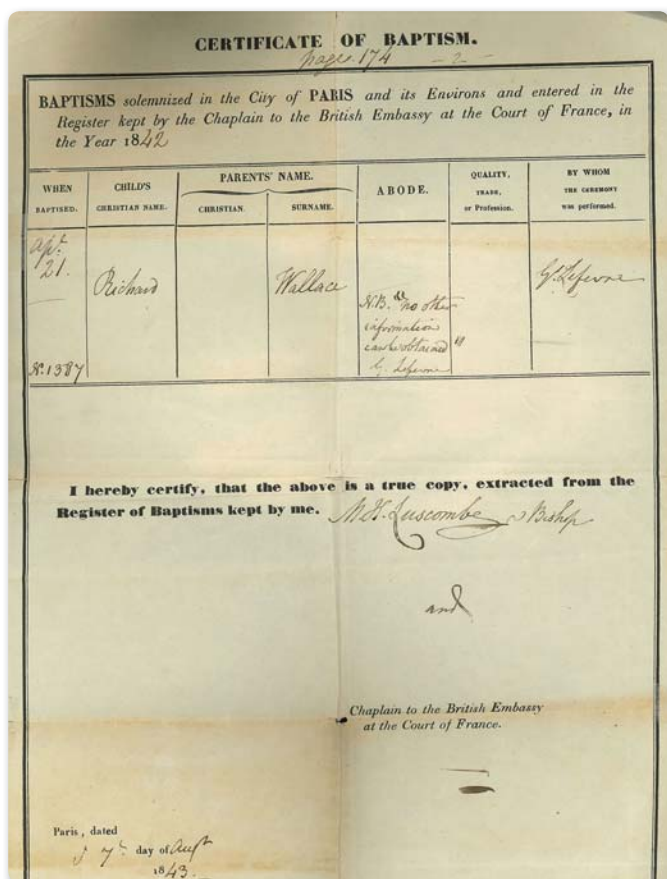 CERTIFICATE OF BAPTISM.
page. 174 - 2 -
BAPTISMS solemnized in the City of PARIS and its Environs and entered in the
Register kept by the Chaplain to the British Embassy at the Court of France, in
the Year 1842
WHEN
BAPTISED.
CHILD'S
CHRISTIAN NAME.
PARENTS' NAME.
CHRISTIAN.
SURNAME.
ABODE.
QUALITY,
TRADE,
or Profession.
BY WHOM
THE CEREMONY
was performed.
Apl.
21.
Richard
Wallace
N.B. "no other
information
can be obtained"
G. Lefevre
G. Lefevre
N. 1387
I hereby certify, that the above is a true copy, extracted from the
Register of Baptisms kept by me. M. H. Luscombe Bishop
and
Chaplain to the British Embassy
at the Court of France.
Paris, dated
7th day of Augt
1843.